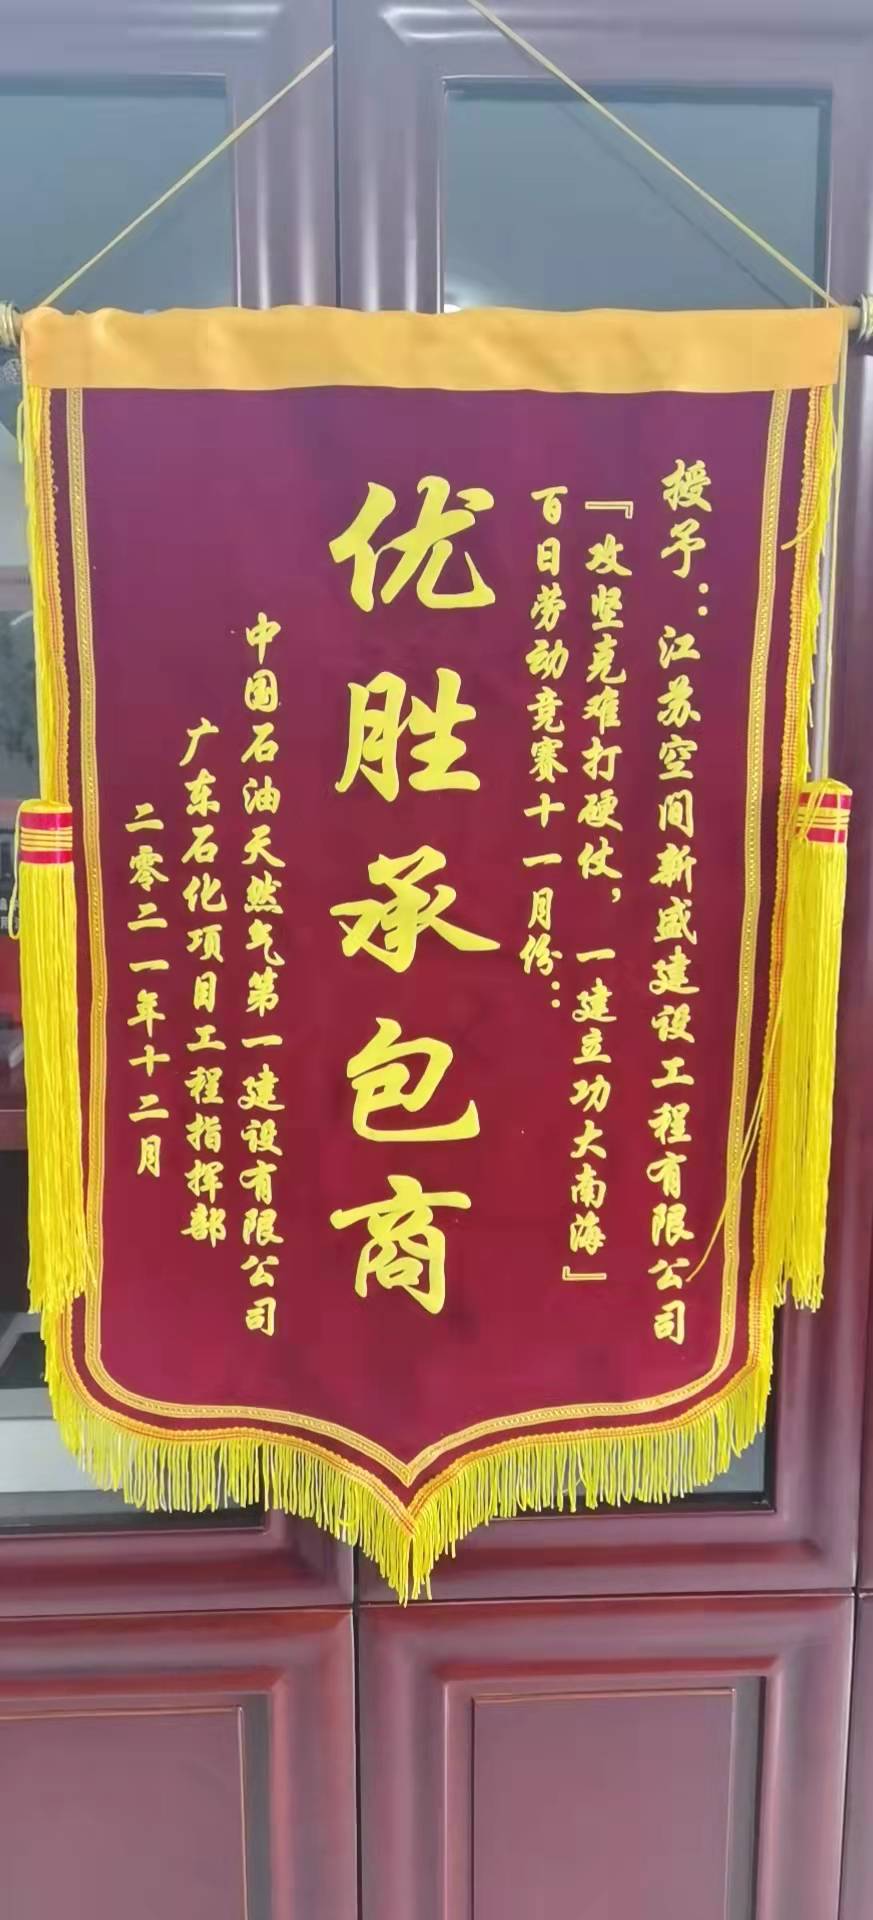 授予：江苏空间新盛建设工程有限公司
『攻坚克难打硬仗，一建立功大南海』
百日劳动竞赛十一月份：
优胜承包商
中国石油天然气第一建设有限公司
广东石化项目工程指挥部
二零二一年十二月